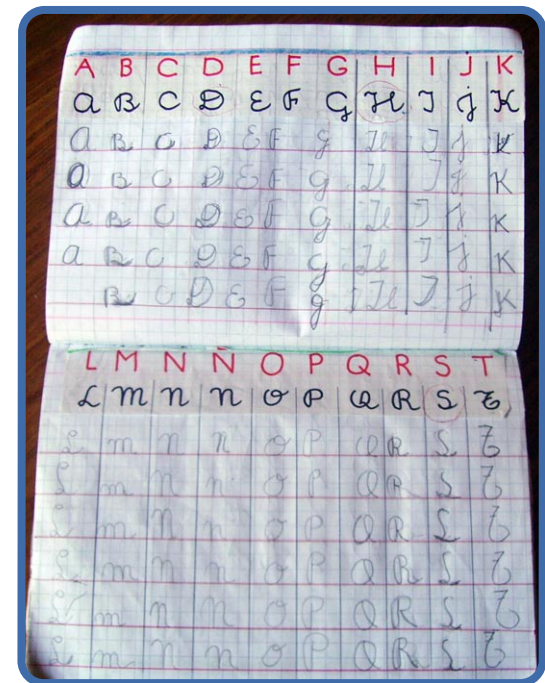 A B C D E F G H I J K
A B C D E F G H I J K
A B C D E F G H I J K
A B C D E F G H I J K
A B C D E F G H I J K
A B C D E F G H I J K
B C D E F G H I J K
L M N Ñ O P Q R S T
L M N N O P Q R S T
L M N N O P Q R S T
L M N N O P Q R S T
L M N N O P Q R S T
L M N N O P Q R S T
L M N N O P Q R S T
L M N N O P Q R S T